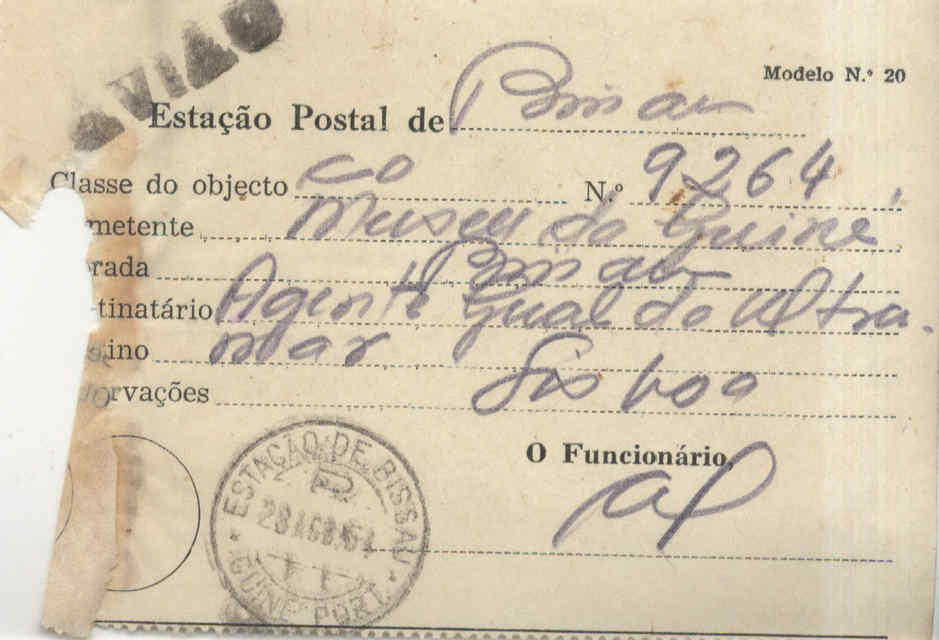 AVIÃO
Modelo N.º 20
Estação Postal de Bissau
Classe do objecto co N.º 9264
metente Museu da Guiné
rada Bissau
tinatário Agente Geral do Ultra-
ino mar Lisboa
rvações
O Funcionário,
ESTAÇÃO DE BISSAU
28 AGO
GUINÉ PORT.